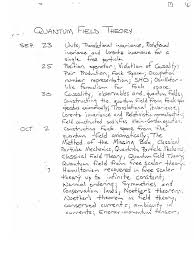 QUANTUM FIELD THEORY
SEP 23 Units, Translational invariance, Rotational
invariance and Lorentz invariance for a
single free particle.
25 Position operator; Violation of Causality;
Pair Production; Fock Space; Occupation
number representation; SHO; Oscillator-
like formalism for Fock space.
30 Causality, observables and quantum fields;
Constructing the quantum field from Fock space
operators axiomatically; Translational invariance;
Lorentz invariance and Relativistic normalization;
Field constructed satisfies Klein-Gordon equation.
OCT 2 Constructing Fock space from the
quantum field axiomatically; The
Method of the Missing Box, Classical
Particle Mechanics, Quantum Particle Mechanics,
Classical Field Theory, Quantum Field Theory;
Quantum field from free scalar theory.
7 Hamiltonian recovered in free scalar
theory up to infinite constant;
Normal ordering; Symmetries and
Conservation laws, Noether's theorem;
Noether's theorem in field theory,
conserved currents;
currents; Energy-momentum tensor;